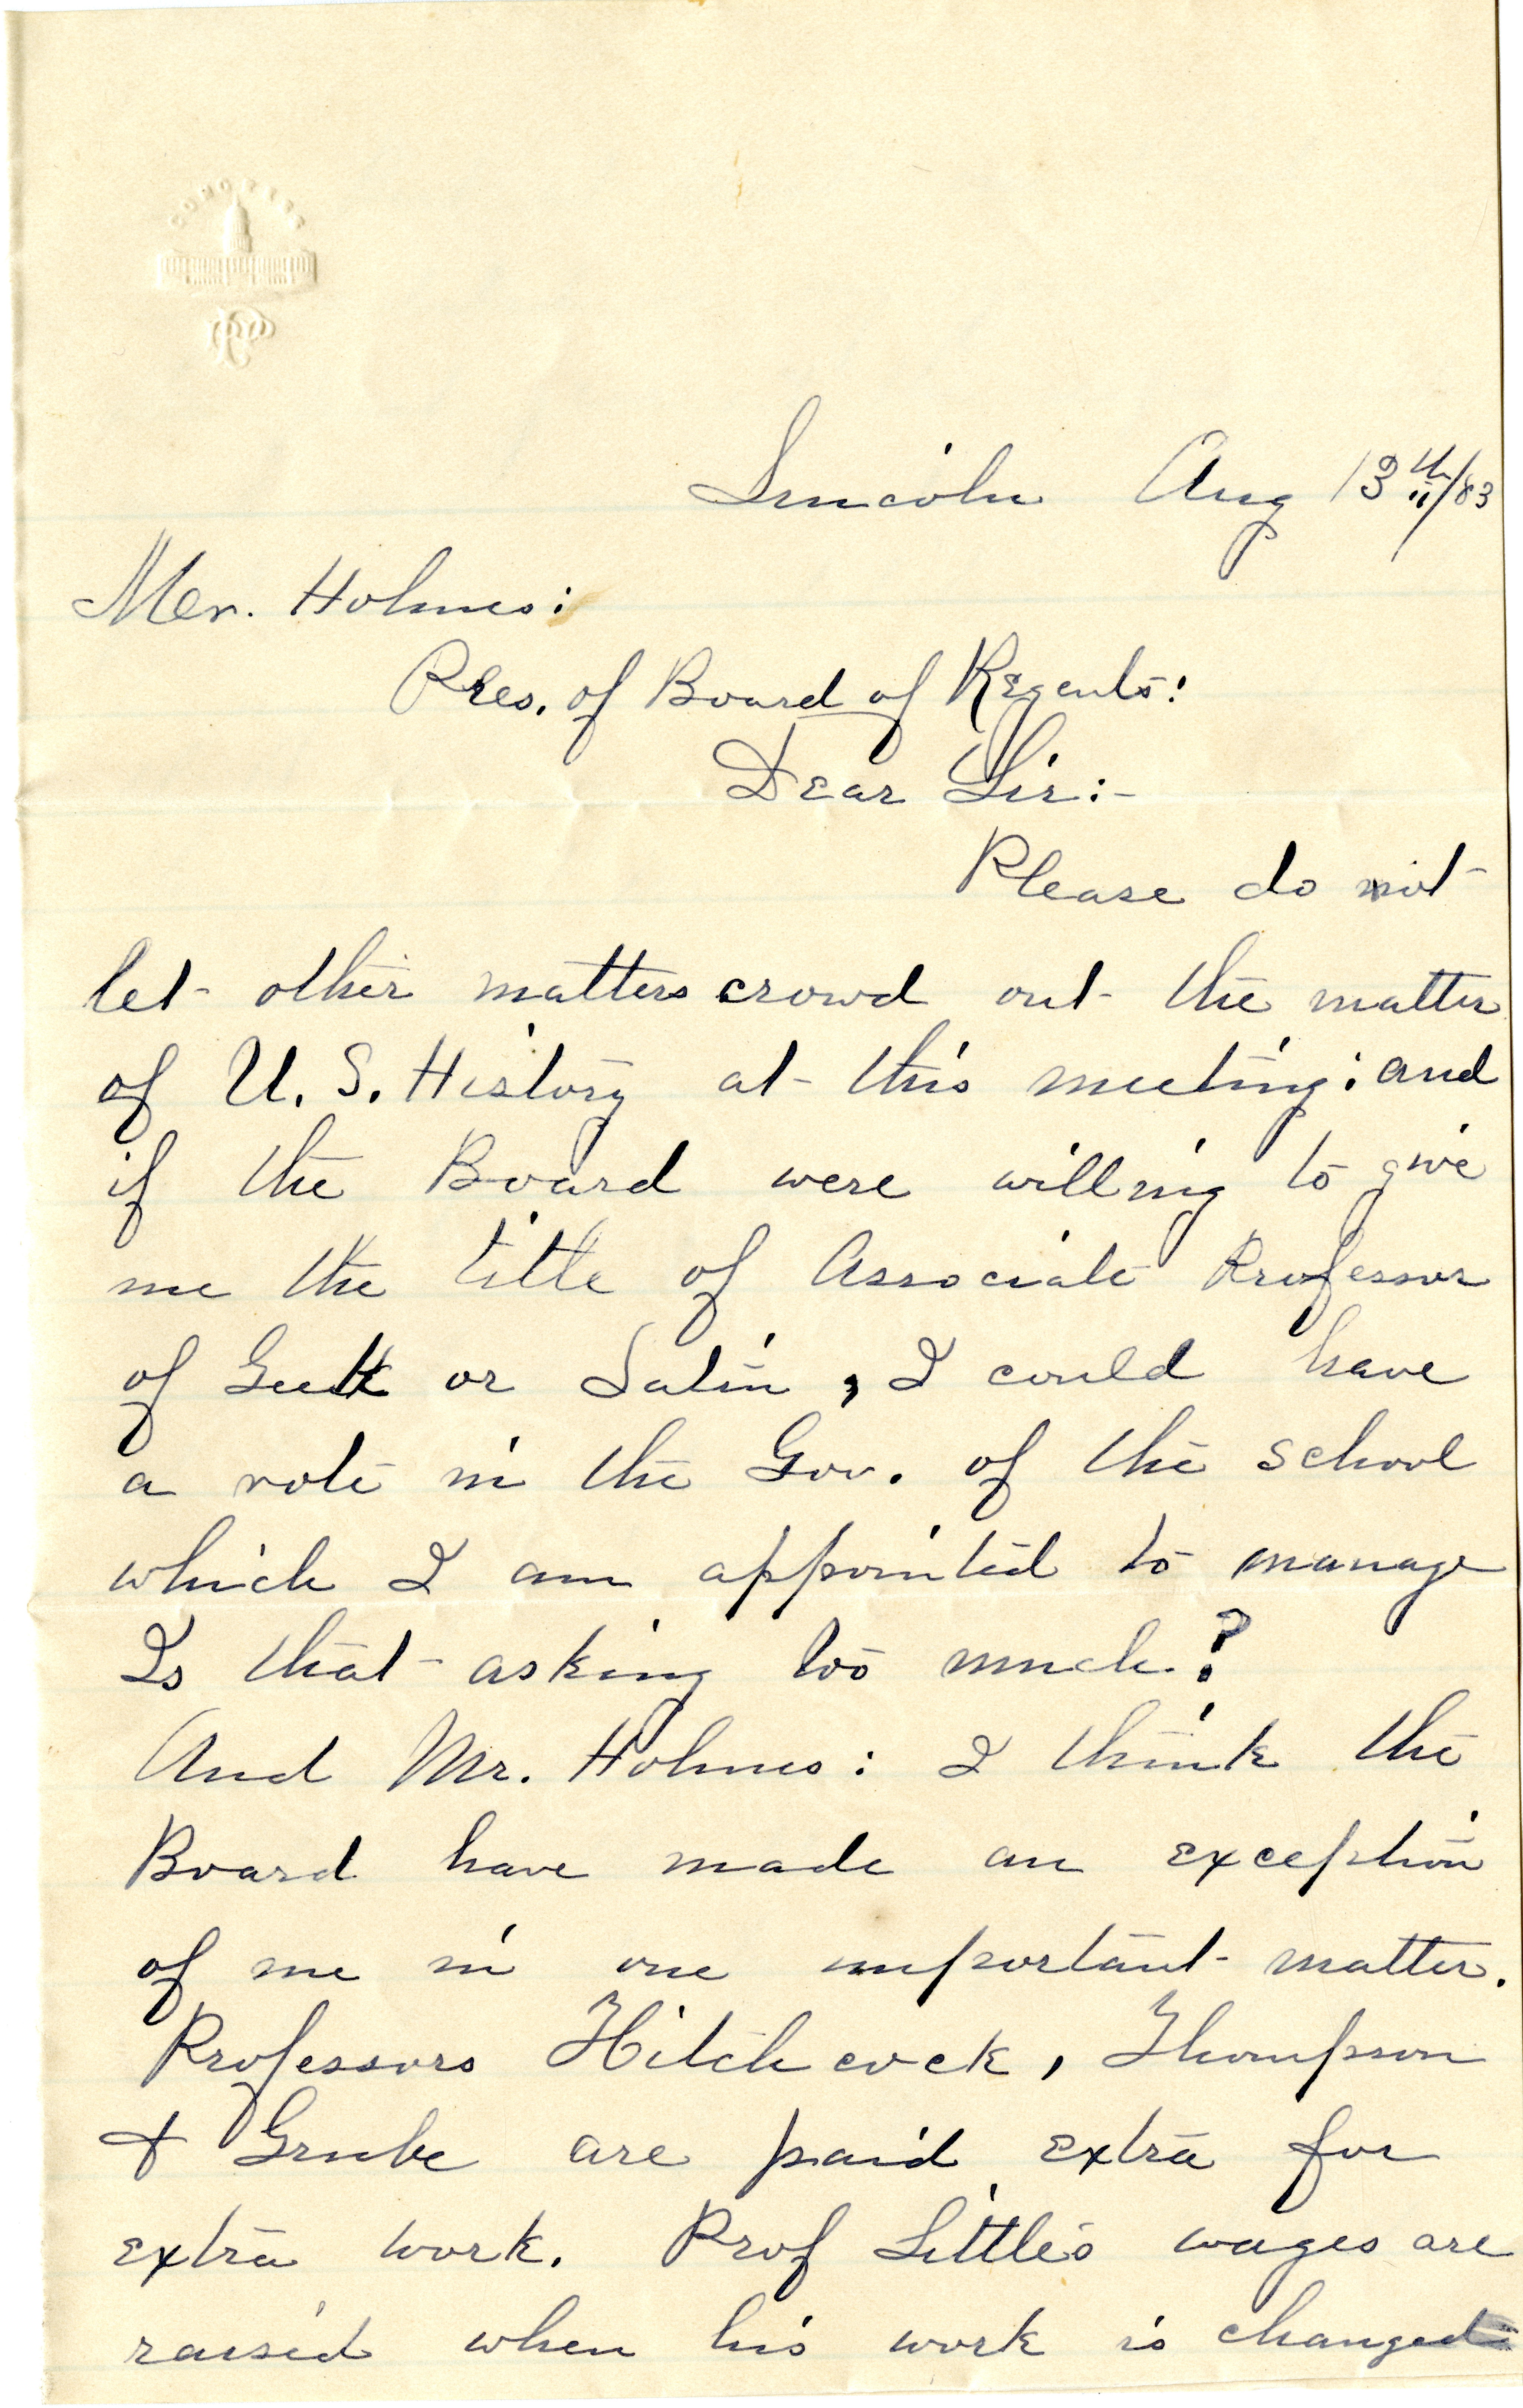 CONGRESS
Lincoln Aug 13th/83
Mr. Holmes:
Pres. of Board of Regents:
Dear Sir:-
Please do not
let other matters crowd out the matter
of U. S. History at this meeting: and
if the Board were willing to give
me the title of Associate Professor
of Greek or Latin, I could have
a vote in the Gov. of the school
which I am appointed to manage
Is that asking too much?
And Mr. Holmes: I think the
Board have made an exception
of me in one important matter.
Professors Hitchcock, Thompson
& Grube are paid extra for
extra work. Prof Little's wages are
raised when his work is changed